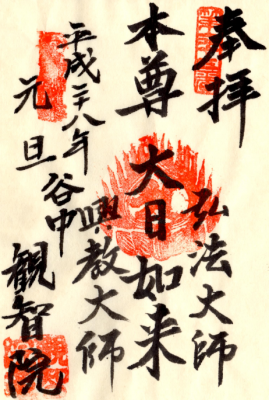 奉拝
弘法大師
本尊 大日如来
興教大師
平成二十八年
元旦
谷中
観智院